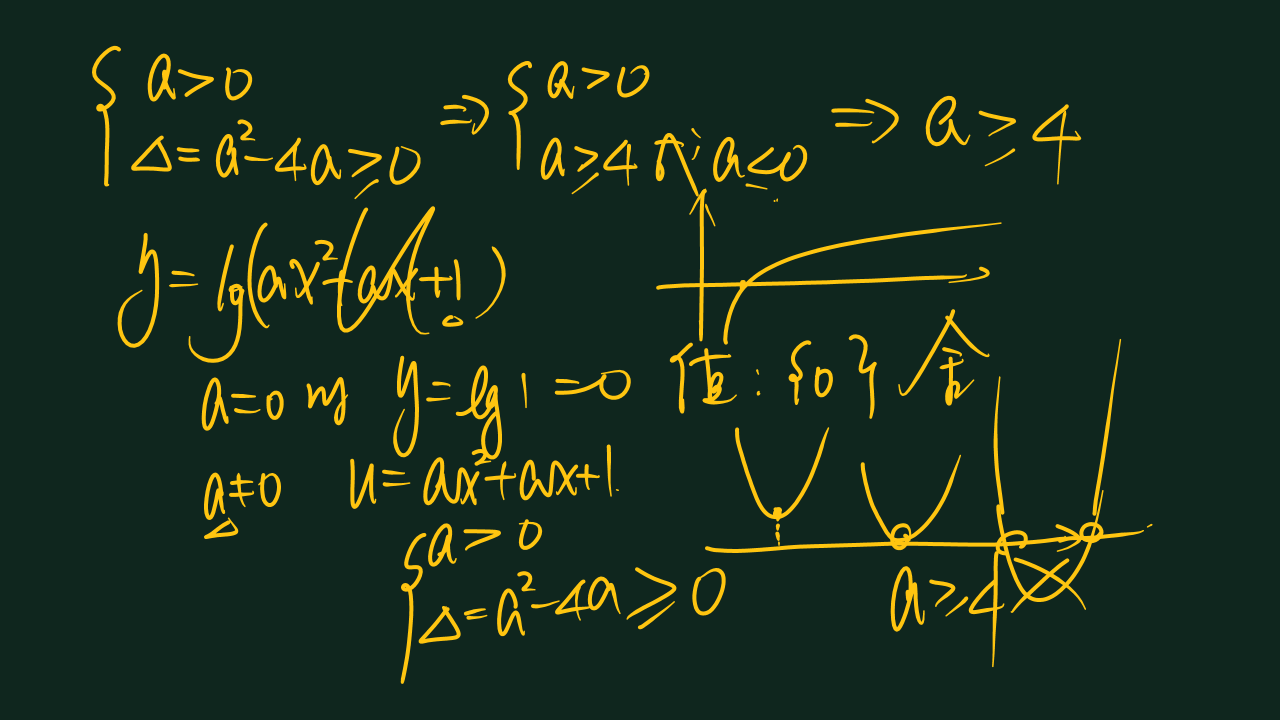 { a>0 Δ=a²-4a≥0 ⇒ { a>0 a≥4 或 a≤0 ⇒ a≥4
y=lg(ax²+ax+1)
a=0时 y=lg1=0 值:{0} 舍
a≠0 u=ax²+ax+1
{ a>0
Δ=a²-4a≥0 a≥4